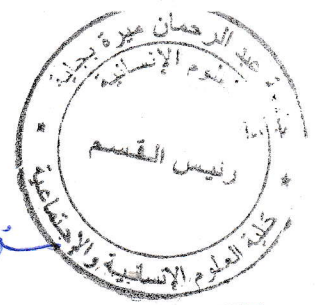 عبد الرحمان ميرة بجاية
علوم الإنسانية
رئيس القسم
كلية العلوم الإنسانية والاجتماعية